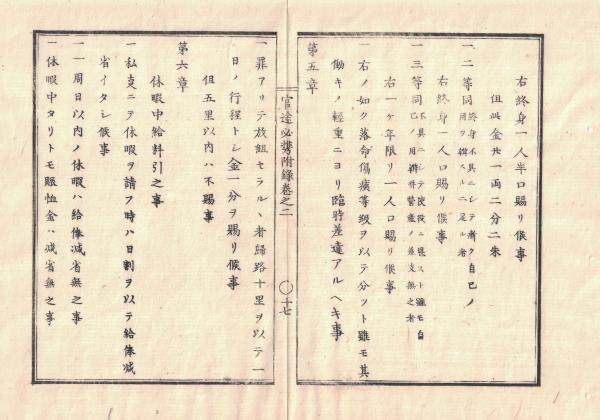 右終身一人半口賜リ候事
但此金廿一両二分二朱
一二等同 終身不具ニシテ漸ク自已ノ
用ヲ辨スルニ足ル者
右終身一人口賜リ候事
一三等同 不具ニシテ戦役ニ堪スト雖モ自
已ノ用辨幷營産ノ差支無之者
右一ケ年限リ一人口賜リ候事
一右ノ如ク落命傷痍等級ヲ以テ分ツト雖モ其
働キノ輕重ニヨリ臨時差違アルヘキ事
第五章
官途必携附錄卷之二
〇十七
一罪アリテ放俎セラルヽ者歸路十里ヲ以テ一
日ノ行程トシ金一分ヲ賜リ候事
但五里以内ハ不賜事
第六章
休暇中給料引之事
一私支ニテ休暇ヲ請フ時ハ日割ヲ以テ給俸減
省イタシ候事
一一周日以内ノ休暇ハ給俸減省無之事
一休暇中タリトモ賑恤金ハ减省無之事